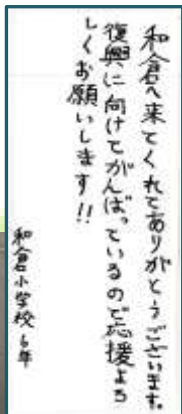 和倉へ来てくれてありがとうございます。
復興に向けてがんばっているので応援よろ
しくお願いします!!
和倉小学校6年